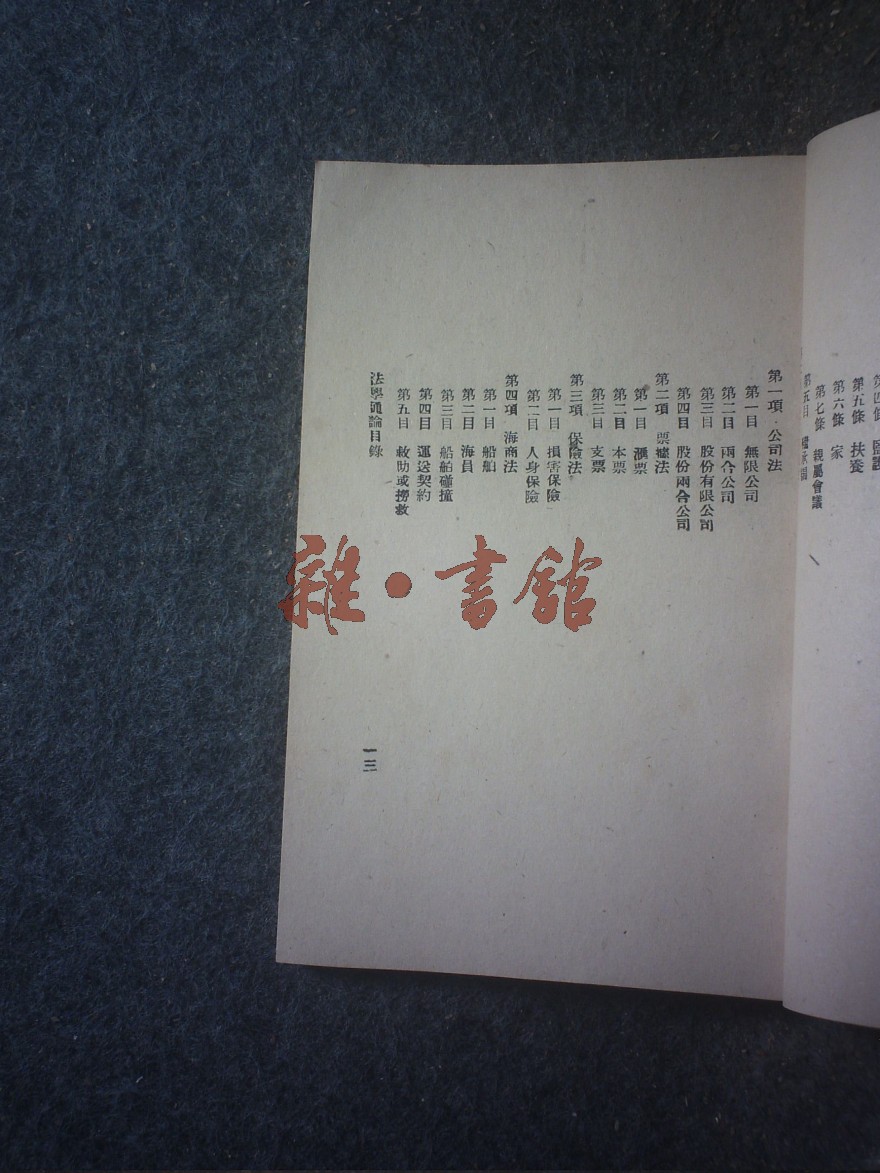 第四條 監護
第五條 扶養
第六條 家
第七條 親屬會議
第五目
第一項 公司法
第一目 無限公司
第二目 兩合公司
第三目 股份有限公司
第四目 股份兩合公司
第二項 票據法
第一目 滙票
第二目 本票
第三目 支票
第三項 保險法
第一目 損害保險
第二目 人身保險
第四項 海商法
第一目 船舶
第二目 海員
第三目 船舶碰撞
第四目 運送契約
第五目 救助或撈救
法學通論目錄
一三
雜·書館